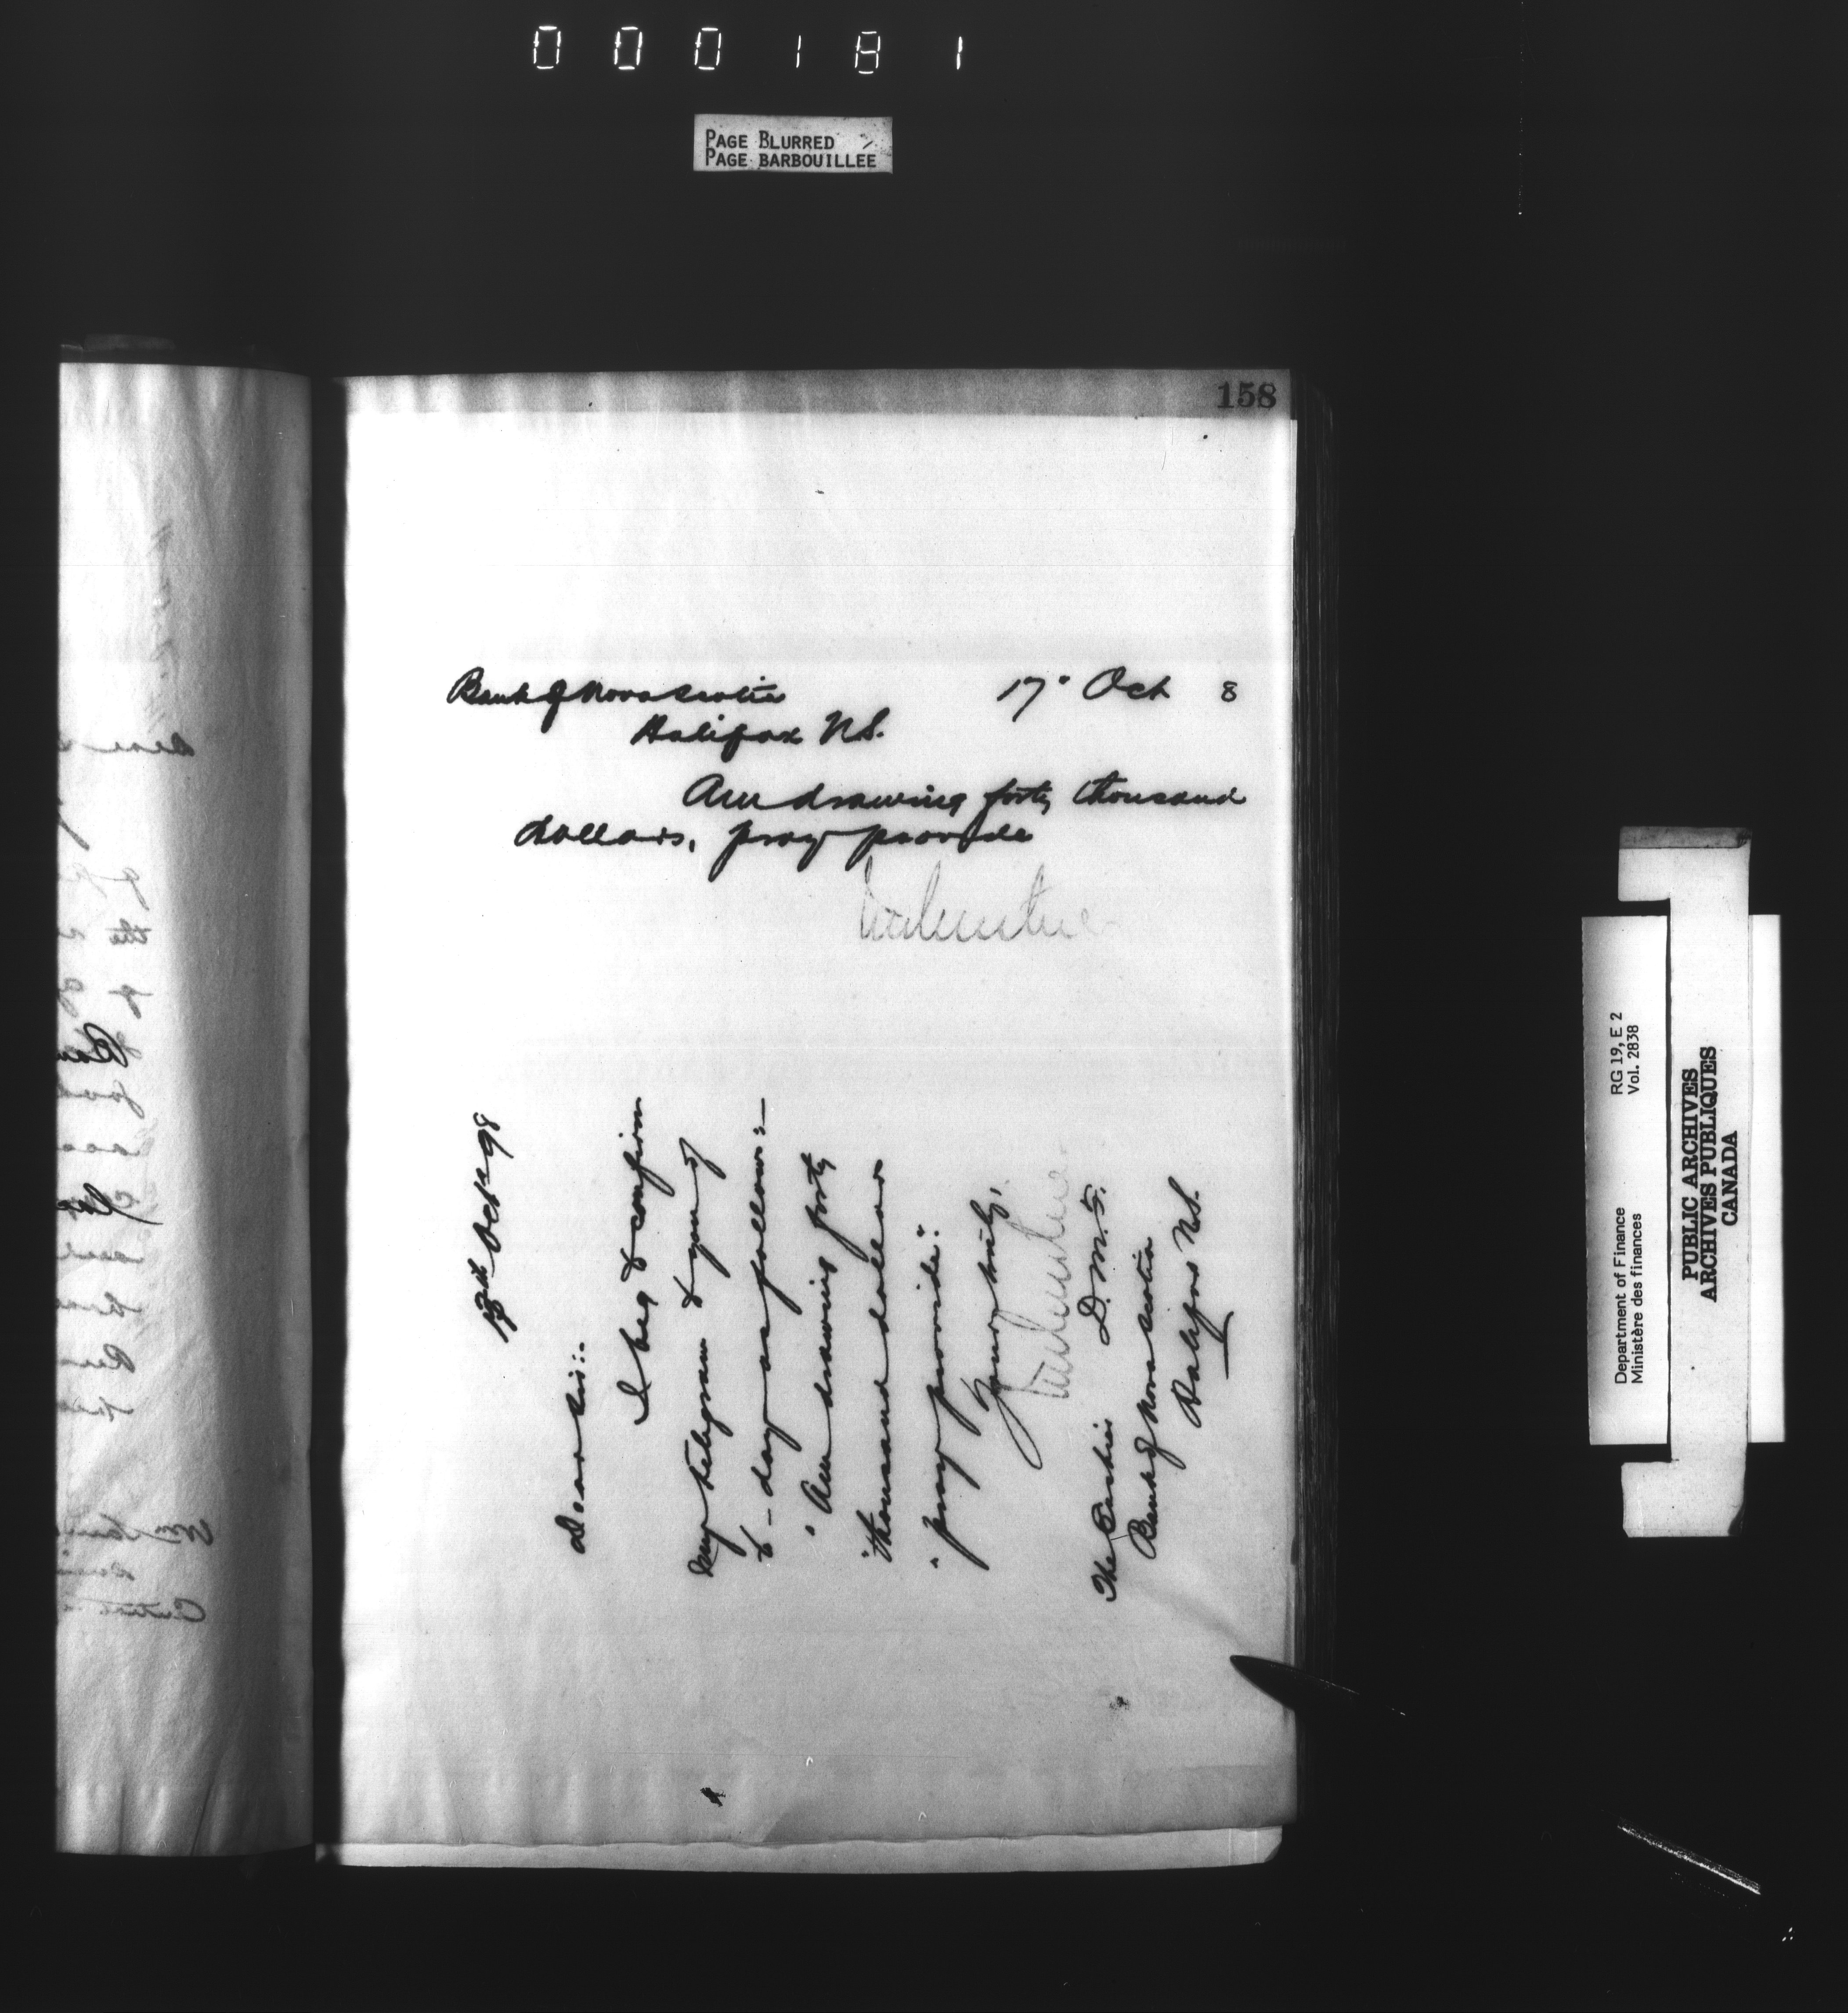 000181
PAGE BLURRED
PAGE BARBOUILLEE
158
Bank of Nova Scotia 17" Oct 8
Halifax N.S.
Am drawing forty thousand
dollars, pray provide
17th Oct 98
Dear Sir:-
I beg to confirm
my telegram to you of
to-day as follows:-
"Am drawing forty
"thousand dollars
"pray provide".
Yours truly,
D.M.F.
The Cashier
Bank of Nova Scotia
Halifax N.S.
Department of Finance RG 19, E 2
Ministère des finances Vol. 2838
PUBLIC ARCHIVES
ARCHIVES PUBLIQUES
CANADA